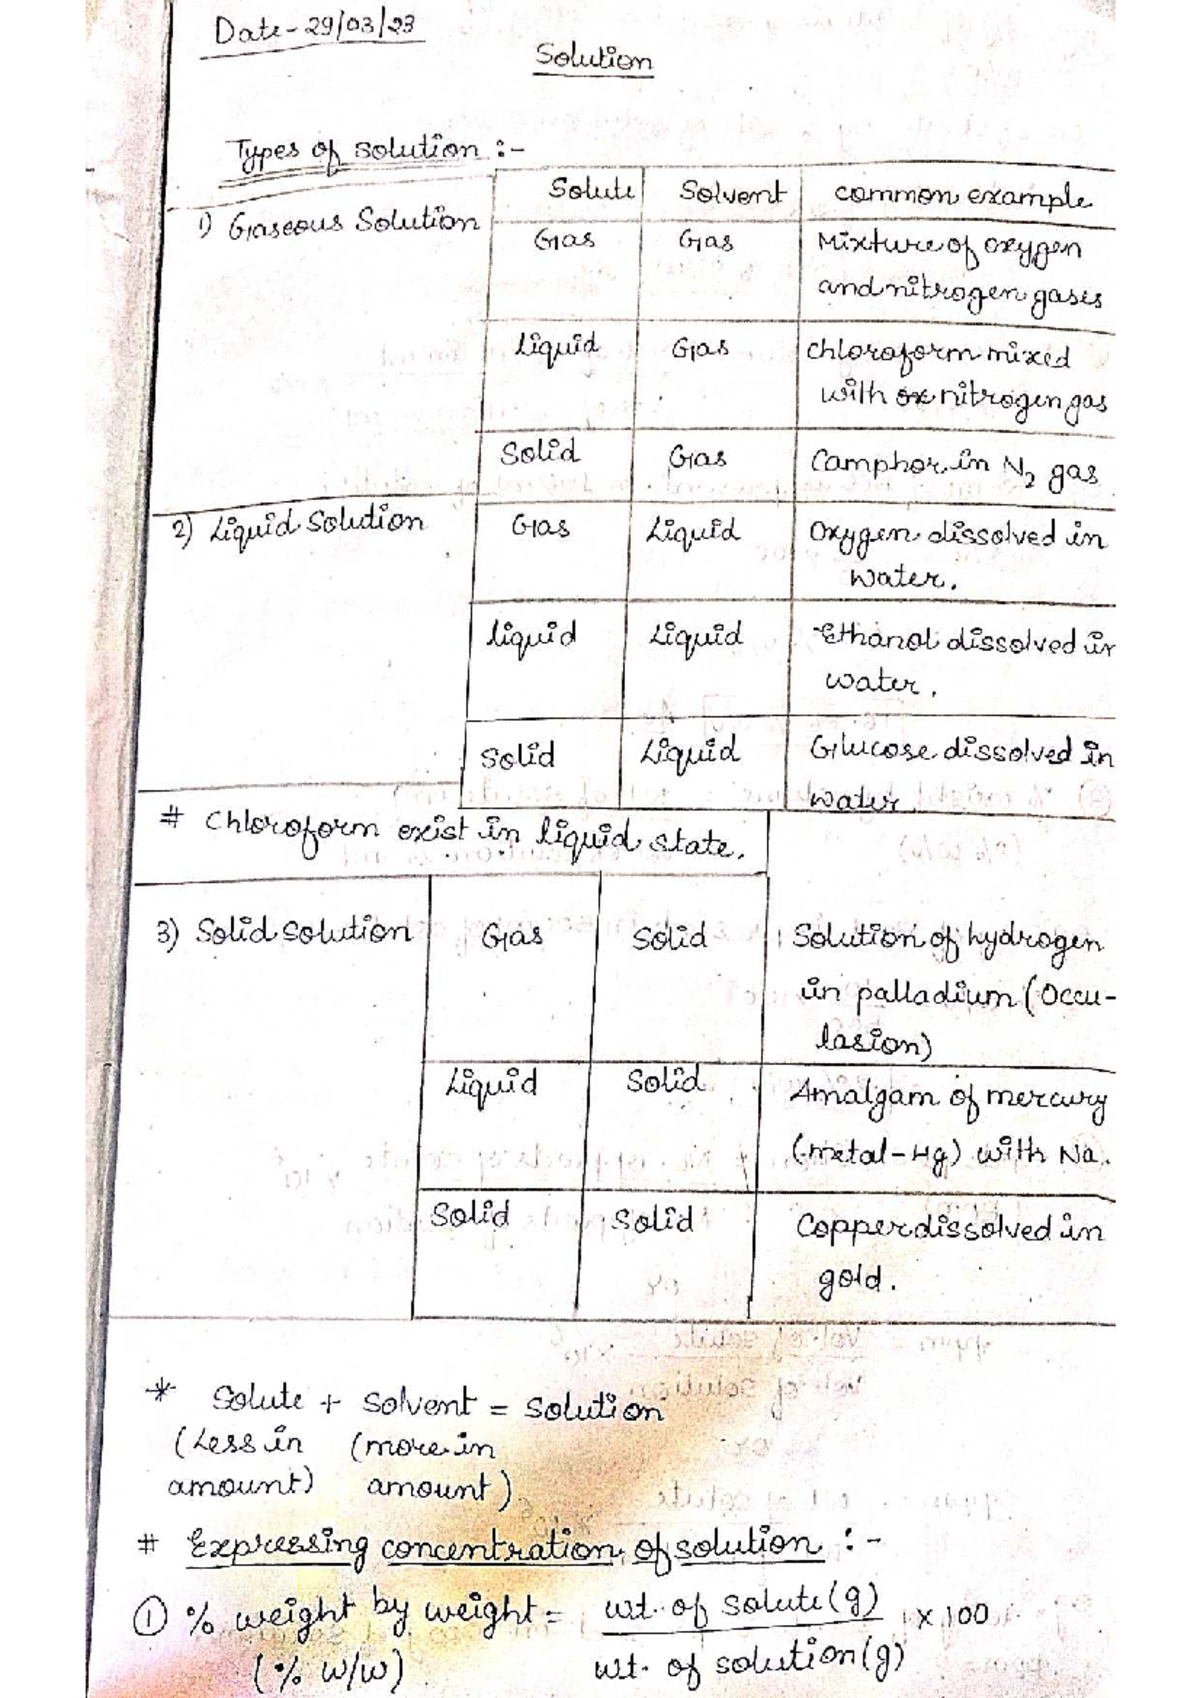 Date - 29/03/23
Solution
Types of solution :-
Solute Solvent common example
1) Gaseous Solution Gas Gas Mixture of oxygen
and nitrogen gases
Liquid Gas chloroform mixed
with ox nitrogen gas
Solid Gas Camphor in N2 gas
2) Liquid Solution Gas Liquid Oxygen dissolved in
water.
liquid Liquid Ethanol dissolved in
water.
Solid Liquid Glucose dissolved in
water.
# Chloroform exist in liquid state.
3) Solid Solution Gas Solid Solution of hydrogen
in palladium (Occu-
lasion)
Liquid Solid Amalgam of mercury
(metal-Hg) with Na.
Solid Solid Copper dissolved in
gold.
* Solute + Solvent = Solution
(Less in (more in
amount) amount)
# Expressing concentration of solution :-
① % weight by weight = wt. of solute (g) × 100
(% w/w) wt. of solution (g)